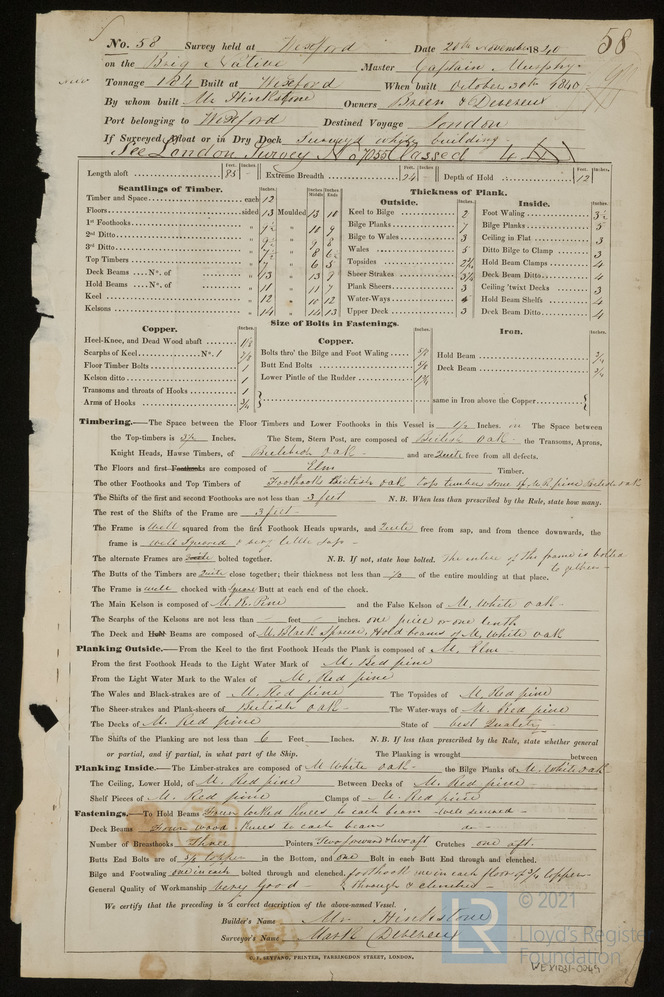 No. 58 Survey held at Wexford Date 20th November 1840 58
on the Brig Native Master Captain Murphy
Tonnage 184 Built at Wexford When built October 30th 1840
By whom built Mr. Hinkstone Owners Breen & Devereux
Port belonging to Wexford Destined Voyage London
If Surveyed Afloat or in Dry Dock Surveyd whilst building
See London Survey No 7055 Classed 4 A1
Length aloft 85 Extreme Breadth 24 Depth of Hold 12
Feet. Inches. Feet. Inches. Feet. Inches.
Scantlings of Timber. Thickness of Plank.
Inches. Inches Middle Inches Ends Outside. Inches. Inside. Inches.
Timber and Space each 12
Floors sided 13 Moulded 13 10 Keel to Bilge 2 Foot Waling 3½
1st Foothooks " 10 9 Bilge Planks Bilge Planks 5
2nd Ditto " 9 8 Bilge to Wales 3 Ceiling in Flat 3
3rd Ditto " 8 Wales 5 Ditto Bilge to Clamp 3
Top Timbers " 7 6 5 Topsides 2½ Hold Beam Clamps 4
Deck Beams No. of " 13 13 9 Sheer Strakes Deck Beam Ditto 4
Hold Beams No. of " 11 11 7 Plank Sheers 3 Ceiling 'twixt Decks 3
Keel " 12 10 12 Water-Ways 4 Hold Beam Shelfs 4
Kelsons " 14 14 13 Upper Deck 3 Deck Beam Ditto 4
Size of Bolts in Fastenings.
Copper. Inches. Copper. Inches. Iron. Inches.
Heel-Knee, and Dead Wood abaft 1⅛
Scarphs of Keel No. 1 Bolts thro' the Bilge and Foot Waling Hold Beam ¾
Floor Timber Bolts 1 Butt End Bolts Deck Beam ¾
Kelson ditto 1 Lower Pintle of the Rudder
Transoms and throats of Hooks 1
Arms of Hooks ¾ same in Iron above the Copper
Timbering.—The Space between the Floor Timbers and Lower Foothooks in this Vessel is ½ Inches. The Space between
the Top-timbers is 3½ Inches. The Stem, Stern Post, are composed of British Oak the Transoms, Aprons,
Knight Heads, Hawse Timbers, of British Oak and are quite free from all defects.
The Floors and first Foothooks are composed of Elm Timber.
The other Foothooks and Top Timbers of Foothooks British oak Top timber some of pine British oak
The Shifts of the first and second Foothooks are not less than 3 feet N. B. When less than prescribed by the Rule, state how many.
The rest of the Shifts of the Frame are 3 feet
The Frame is well squared from the first Foothook Heads upwards, and quite free from sap, and from thence downwards, the
frame is well squared & very little sap
The alternate Frames are quite bolted together. N. B. If not, state how bolted. The entire of the frame is bolted together
The Butts of the Timbers are quite close together; their thickness not less than ½ of the entire moulding at that place.
The Frame is well chocked with square Butt at each end of the chock.
The Main Kelson is composed of M. R. Pine and the False Kelson of M. White oak
The Scarphs of the Kelsons are not less than feet inches. one piece in one length
The Deck and Hold Beams are composed of M. Black Spruce, Hold beams of M. White oak
Planking Outside.—From the Keel to the first Foothook Heads the Plank is composed of M. Elm
From the first Foothook Heads to the Light Water Mark of M. Red pine
From the Light Water Mark to the Wales of M. Red pine
The Wales and Black-strakes are of M. Red pine The Topsides of M. Red pine
The Sheer-strakes and Plank-sheers of British oak The Water-ways of M. Red pine
The Decks of M. Red pine State of best Quality
The Shifts of the Planking are not less than 6 Feet Inches. N. B. If less than prescribed by the Rule, state whether general
or partial, and if partial, in what part of the Ship. The Planking is wrought between
Planking Inside.—The Limber-strakes are composed of M White oak the Bilge Planks of M. White oak
The Ceiling, Lower Hold, of M. Red pine Between Decks of M. Red pine
Shelf Pieces of M. Red pine Clamps of M. Red pine
Fastenings.—To Hold Beams Knees to each beam well secured
Deck Beams Four wood Knees to each beam do
Number of Breasthooks Three Pointers Two forward & two aft Crutches one aft.
Butts End Bolts are of ¾ Copper in the Bottom, and one Bolt in each Butt End through and clenched.
Bilge and Footwaling one in each bolted through and clenched, foothook one in each floor of ¾ Copper
General Quality of Workmanship very Good through & clenched
We certify that the preceding is a correct description of the above-named Vessel.
Builder's Name Mr Hinkstone
Surveyor's Name Mark Devereux
C. F. SEYFANG, PRINTER, FARRINGDON STREET, LONDON.
© 2021
LR
Lloyd's Register
Foundation
WEX1031-0049